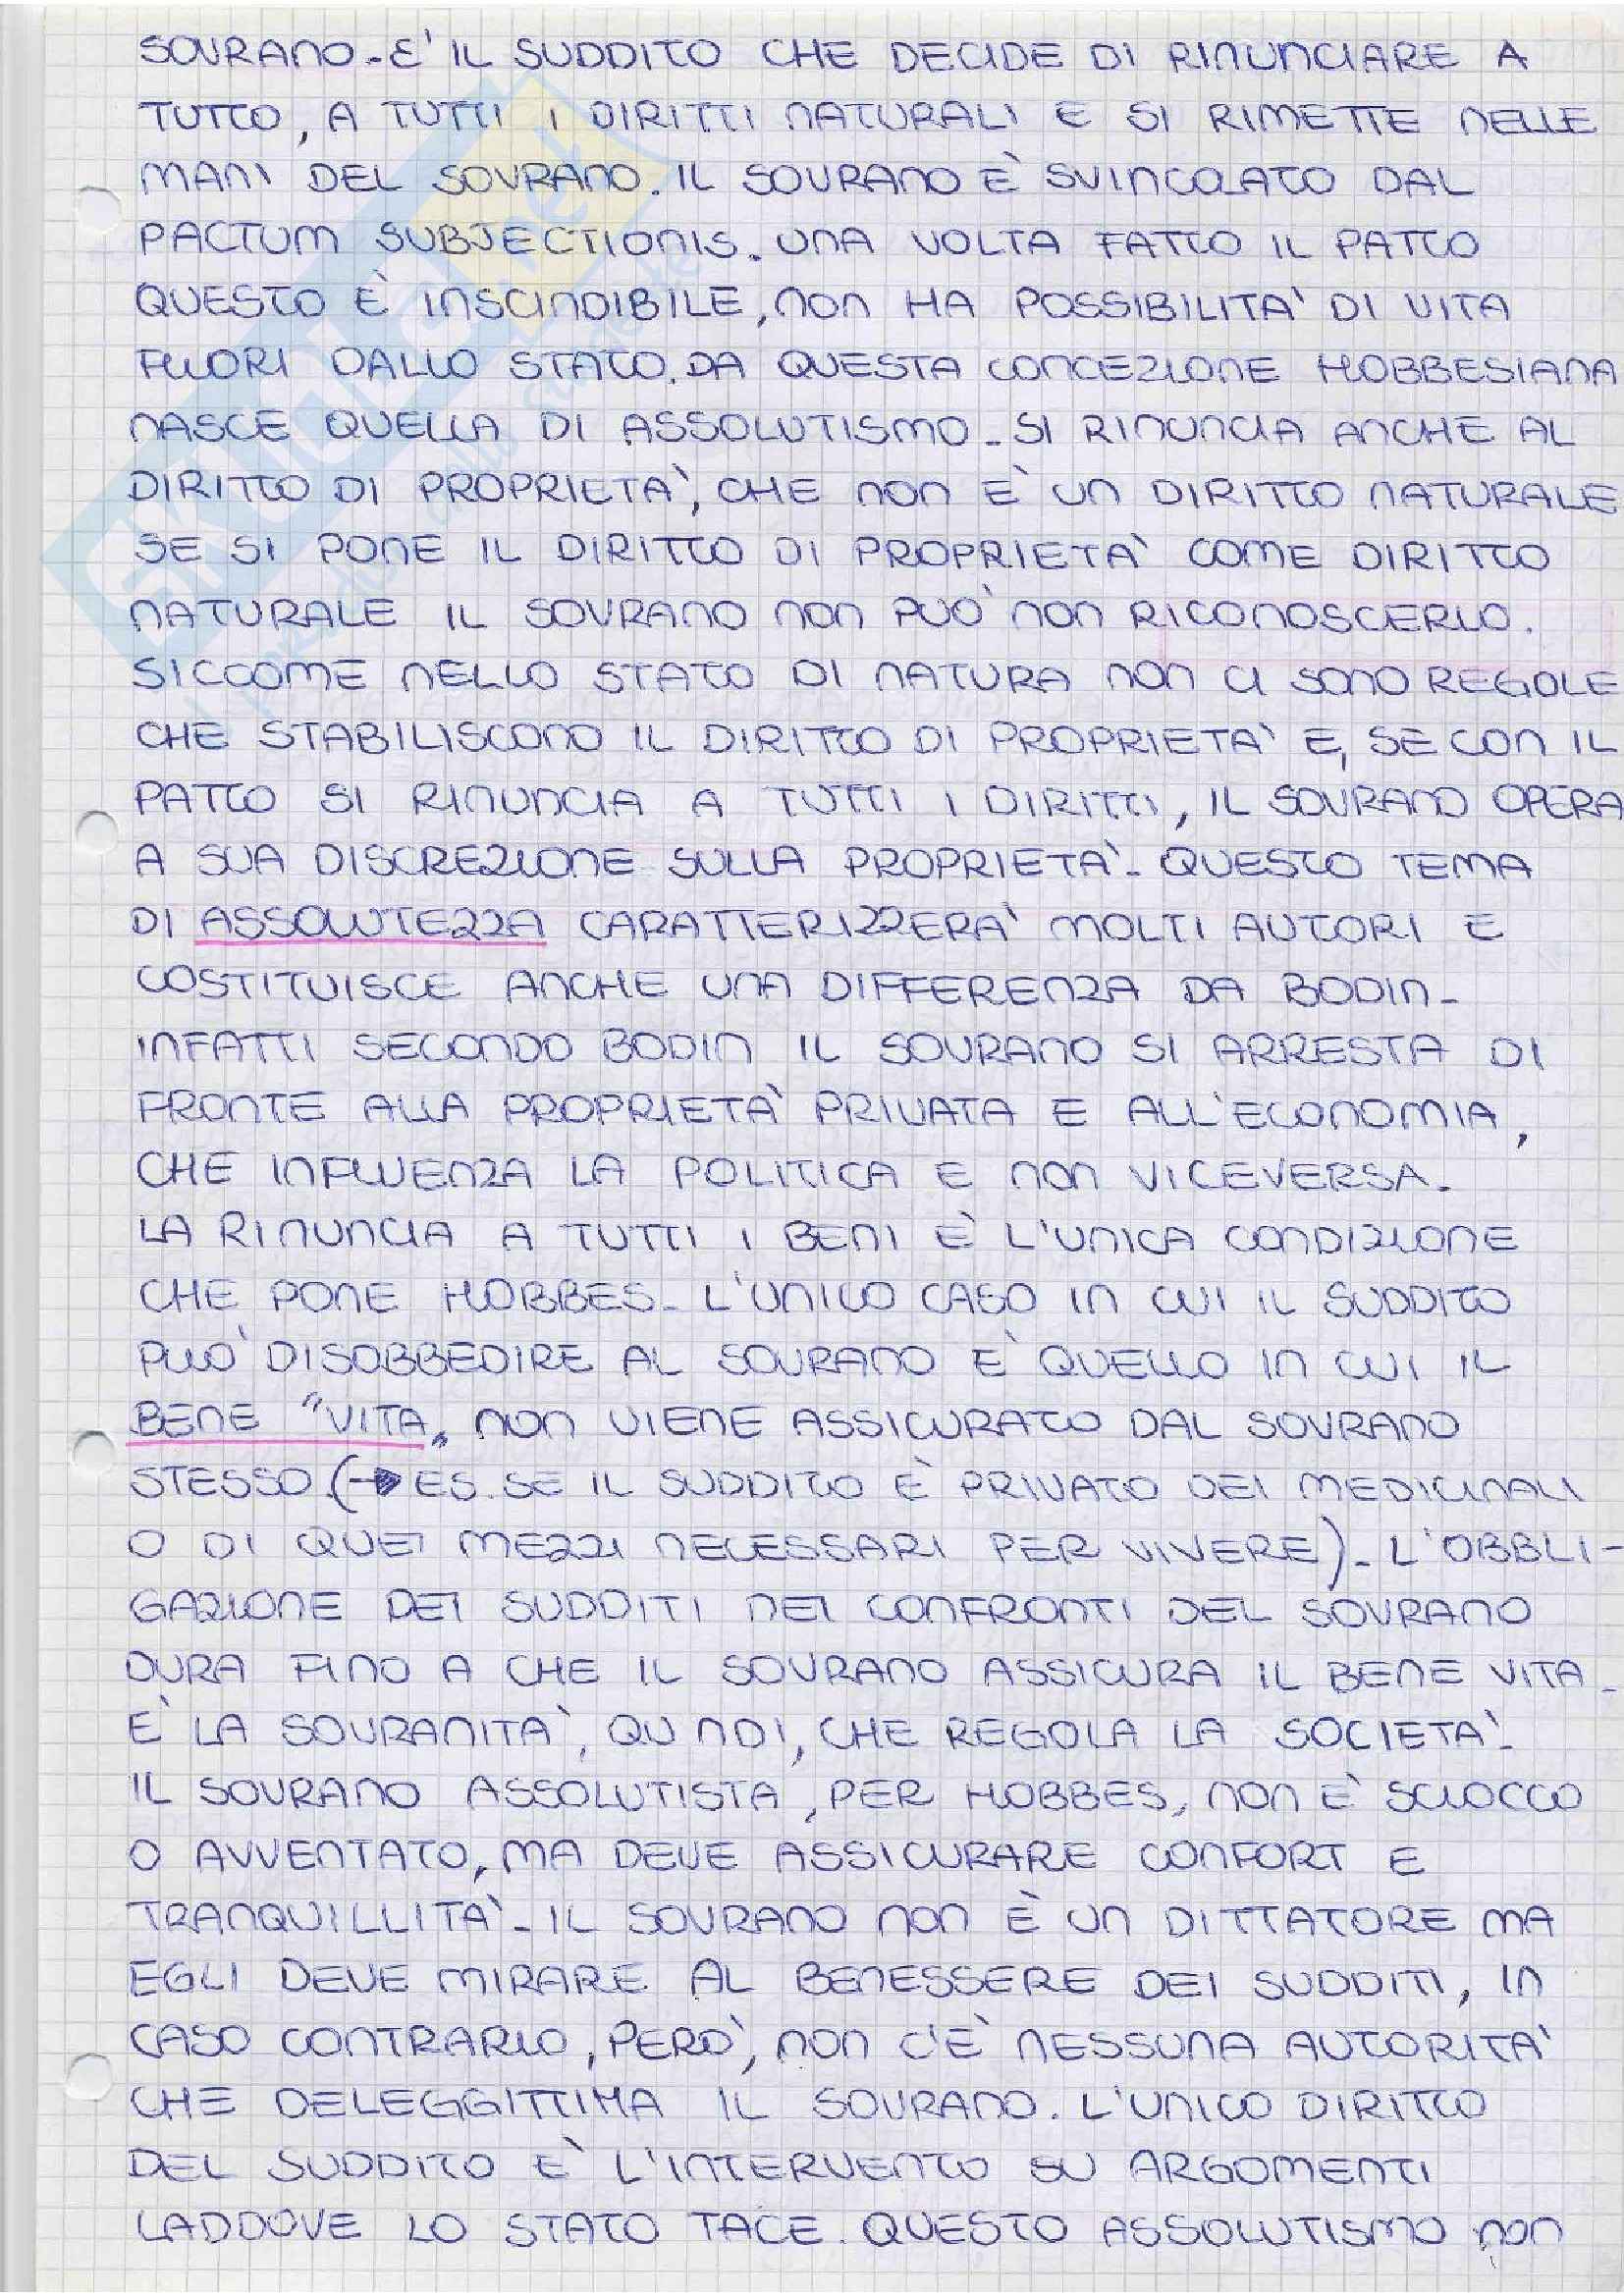 SOVRANO. E' IL SUDDITO CHE DECIDE DI RINUNCIARE A
TUTTO, A TUTTI I DIRITTI NATURALI E SI RIMETTE NELLE
MANI DEL SOVRANO. IL SOVRANO È SVINCOLATO DAL
PACTUM SUBJECTIONIS. UNA VOLTA FATTO IL PATTO
QUESTO È INSCINDIBILE, NON HA POSSIBILITA' DI VITA
FUORI DALLO STATO. DA QUESTA CONCEZIONE HOBBESIANA
NASCE QUELLA DI ASSOLUTISMO. SI RINUNCIA ANCHE AL
DIRITTO DI PROPRIETA', CHE NON È UN DIRITTO NATURALE
SE SI PONE IL DIRITTO DI PROPRIETA' COME DIRITTO
NATURALE IL SOVRANO NON PUO' NON RICONOSCERLO.
SICCOME NELLO STATO DI NATURA NON CI SONO REGOLE
CHE STABILISCONO IL DIRITTO DI PROPRIETA' E, SE CON IL
PATTO SI RINUNCIA A TUTTI I DIRITTI, IL SOVRANO OPERA
A SUA DISCREZIONE SULLA PROPRIETA'. QUESTO TEMA
DI ASSOLUTEZZA CARATTERIZZERA' MOLTI AUTORI E
COSTITUISCE ANCHE UNA DIFFERENZA DA BODIN.
INFATTI SECONDO BODIN IL SOVRANO SI ARRESTA DI
FRONTE ALLA PROPRIETA' PRIVATA E ALL'ECONOMIA,
CHE INFLUENZA LA POLITICA E NON VICEVERSA.
LA RINUNCIA A TUTTI I BENI È L'UNICA CONDIZIONE
CHE PONE HOBBES. L'UNICO CASO IN CUI IL SUDDITO
PUO' DISOBBEDIRE AL SOVRANO E' QUELLO IN CUI IL
BENE "VITA" NON VIENE ASSICURATO DAL SOVRANO
STESSO. (→ ES. SE IL SUDDITO È PRIVATO DEI MEDICINALI
O DI QUEI MEZZI NECESSARI PER VIVERE). L'OBBLI-
GAZIONE DEI SUDDITI NEI CONFRONTI DEL SOVRANO
DURA FINO A CHE IL SOVRANO ASSICURA IL BENE VITA.
E' LA SOVRANITA', QU NDI, CHE REGOLA LA SOCIETA'.
IL SOVRANO ASSOLUTISTA, PER HOBBES, NON È SCIOCCO
O AVVENTATO, MA DEVE ASSICURARE CONFORT E
TRANQUILLITA'. IL SOVRANO NON È UN DITTATORE MA
EGLI DEVE MIRARE AL BENESSERE DEI SUDDITI, IN
CASO CONTRARIO, PERO', NON C'È NESSUNA AUTORITA'
CHE DELEGGITTIMA IL SOVRANO. L'UNICO DIRITTO
DEL SUDDITO E' L'INTERVENTO SU ARGOMENTI
LADDOVE LO STATO TACE. QUESTO ASSOLUTISMO NON